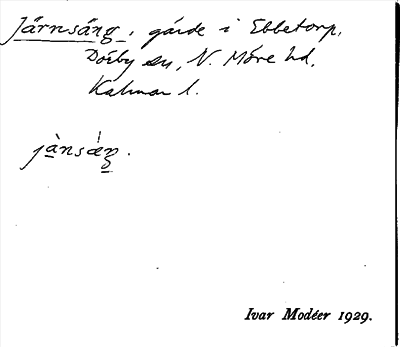 Järnsäng, gärde i Ebbetorp,
Dörby sn, N. Möre hd,
Kalmar l.
jànsǽŋ.
Ivar Modéer 1929.